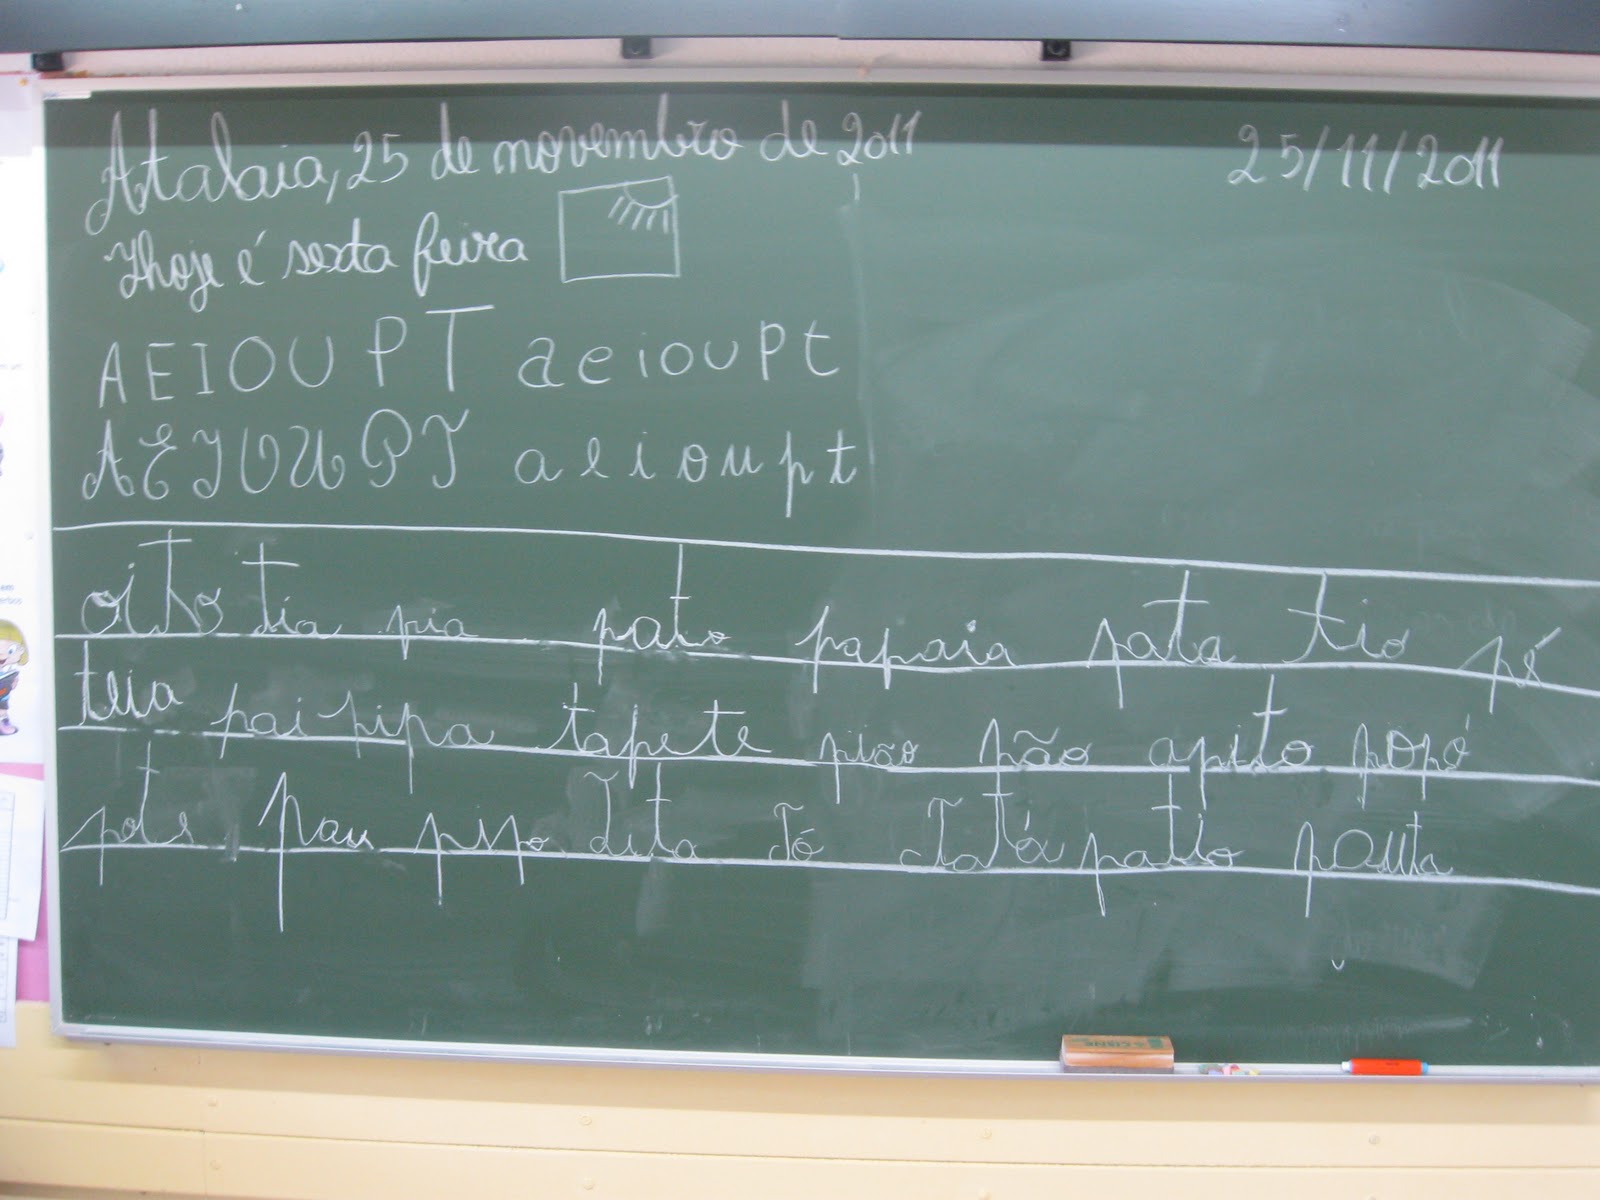 Atalaia, 25 de novembro de 2011
25/11/2011
Hhoje é sexta feira
A E I O U P T a e i o u p t
A E I O U P T a e i o u p t
oito tia pia pato papaia pata tio pé
teia pai pipa tapete pião pão apito popó
pote Pau pipo Tita Tó Tatá patio pauta